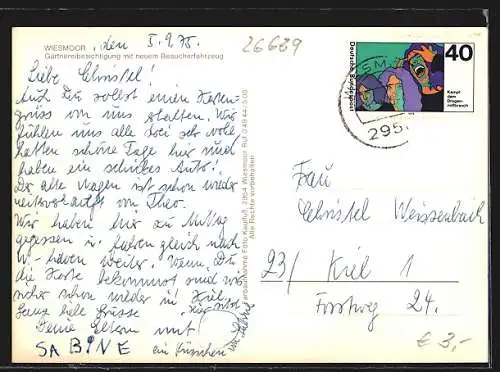 WIESMOOR, den 5.9.75.
Gärtnereibesichtigung mit neuem Besucherfahrzeug
26689
Liebe Christel!
Auch Du sollst einen Karten-
gruss von uns erhalten. Wir
fühlen uns alle drei sehr wohl
hatten schöne Tage hier und
haben ein schickes Auto!
Der alte Wagen ist schon wieder
von Theo.
Wir haben hier zu Mittag
gegessen u. fahren gleich nach
W-haven weiter. Wenn Du
die Karte bekommst sind wir
sicher schon wieder in Kiel.
Ganz liebe Grüsse
Deine Eltern mit
SABINE
ein Küsschen
Farbaufnahme Foto-Kaufluß, 2964 Wiesmoor Ruf 04944-5
Alle Rechte vorbehalten
Deutsche Bundespost
40
Kampf
dem
Drogen-
mißbrauch
295
Frau
Christel Weissenbach
23/ Kiel 1
Forstweg 24.
€ 3,-